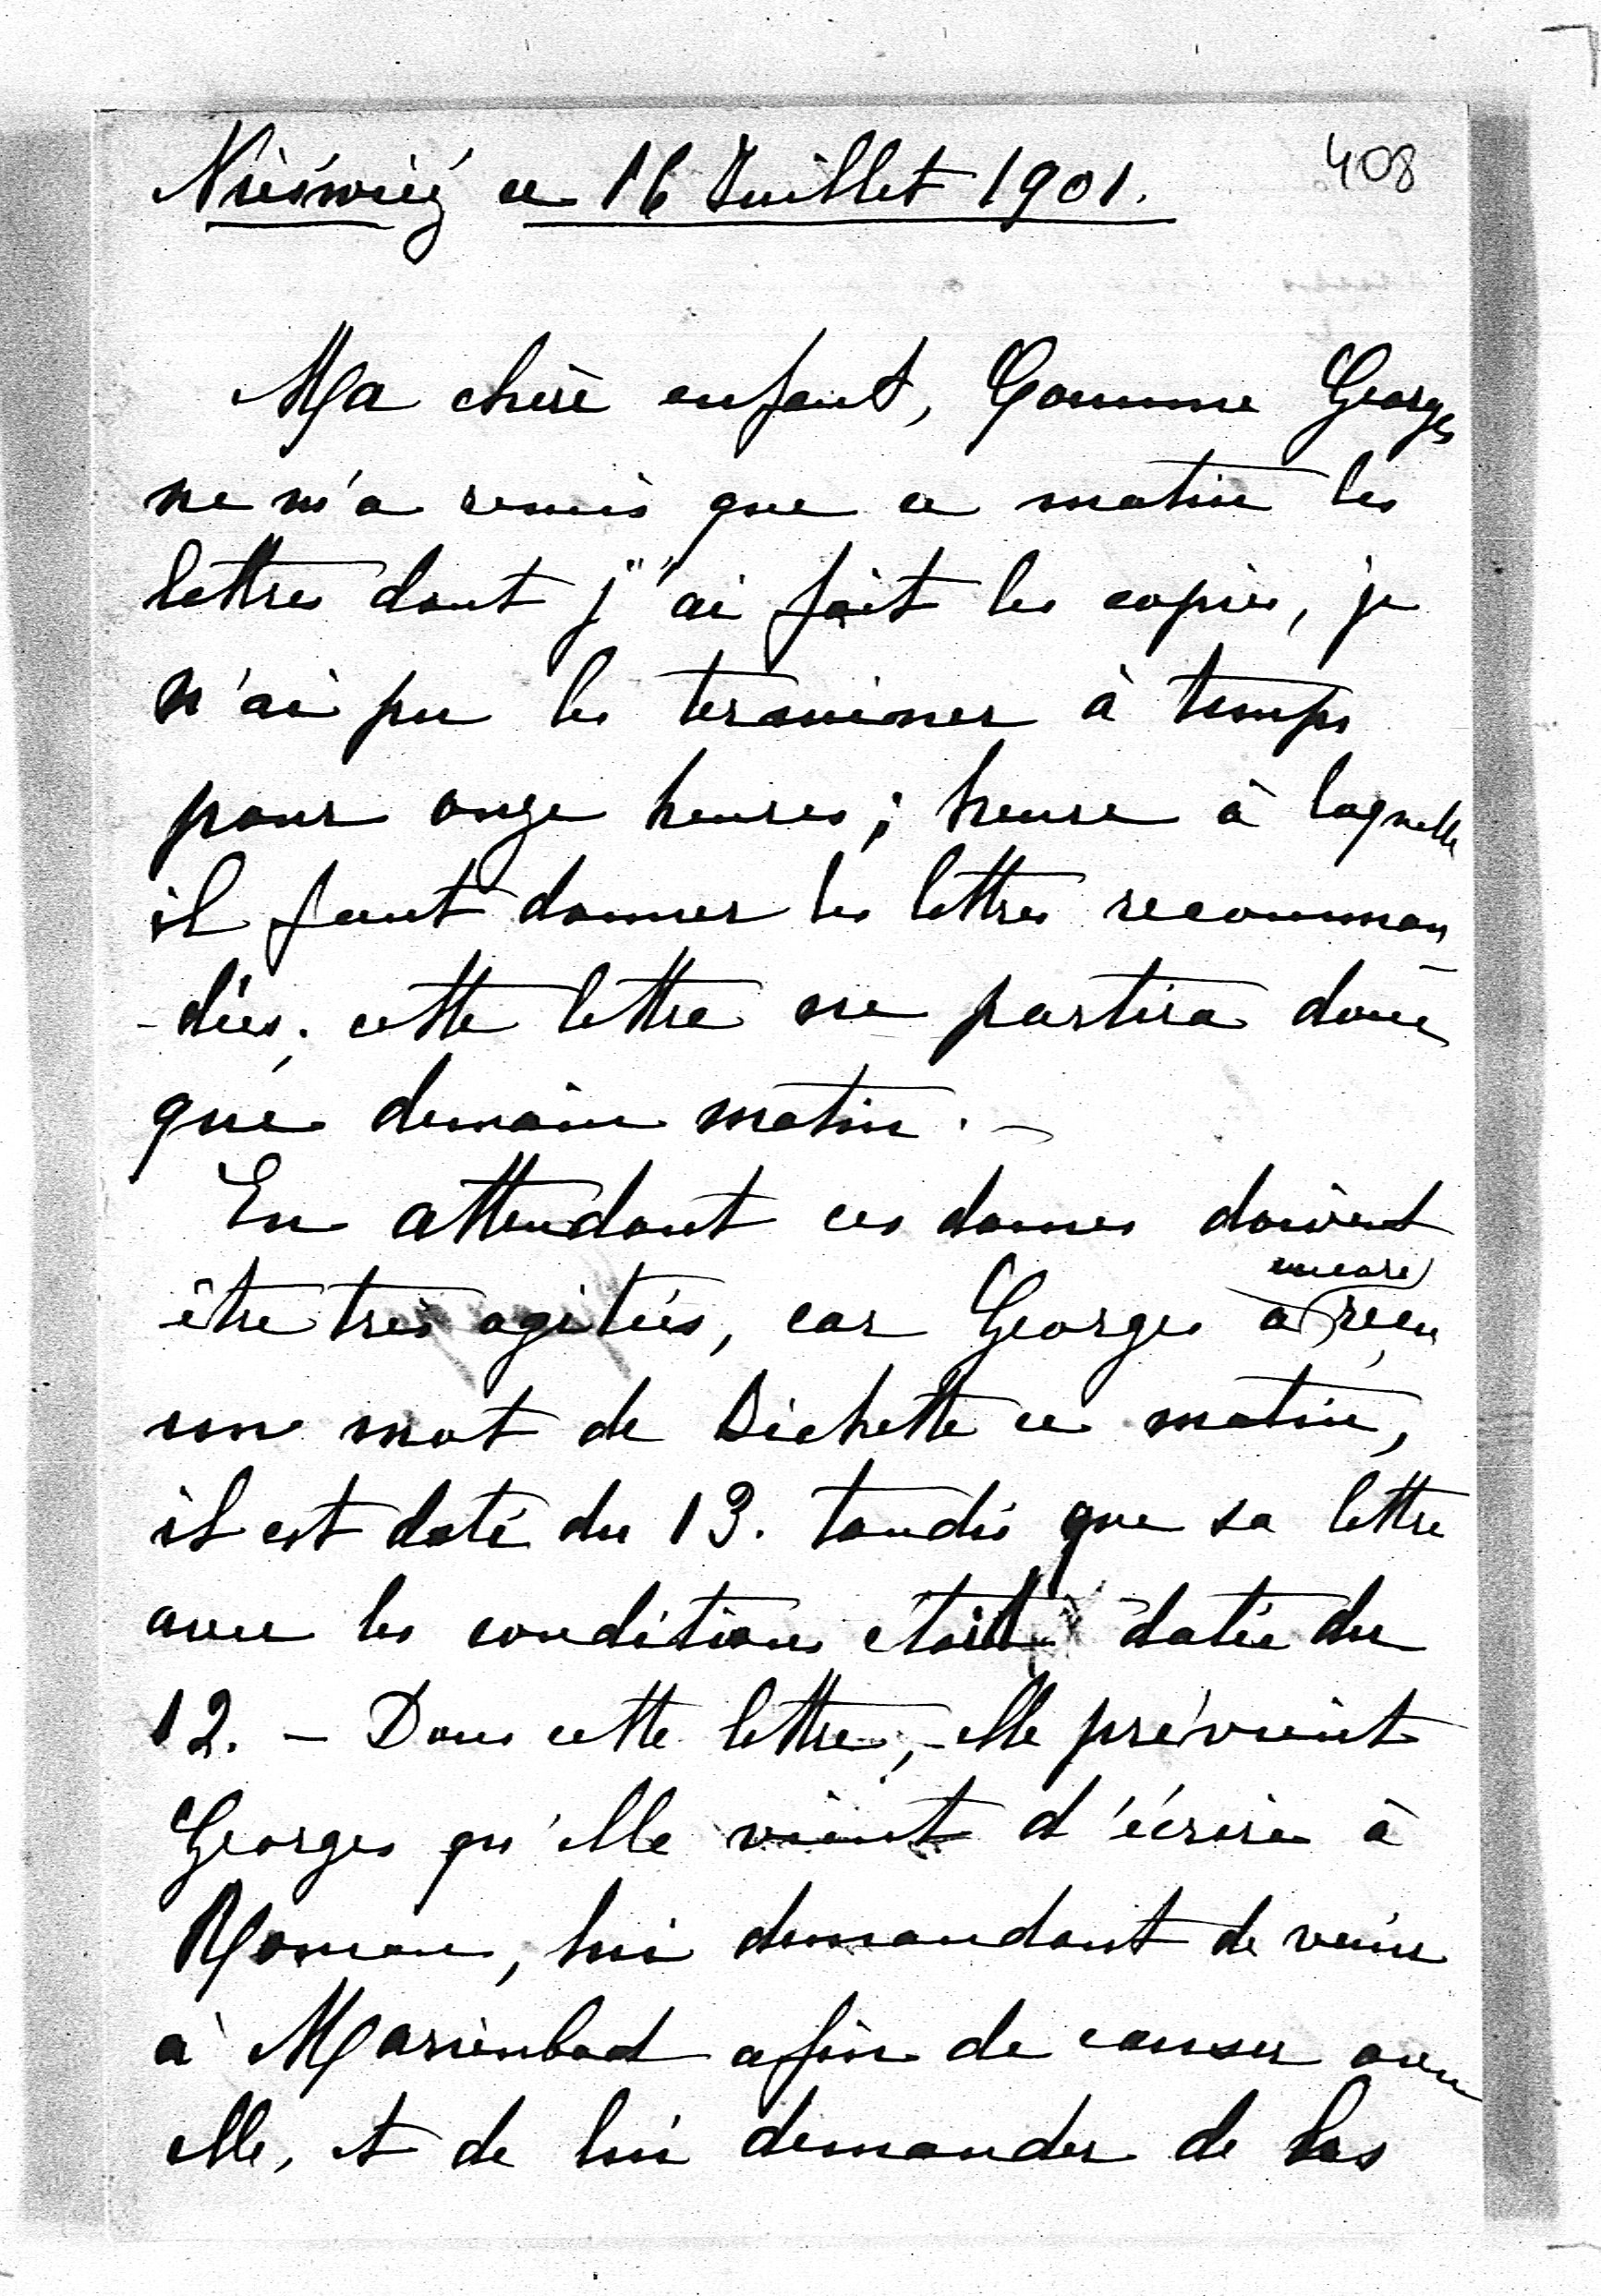 408
Nieśwież ce 16 Juillet 1901.
Ma chère enfant, Comme Georges
ne m'a remis que ce matin les
lettres dont j'ai fait les copies, je
n'ai pu les terminer à temps
pour onze heures; heure à laquelle
il faut donner les lettres recomman
-dées; cette lettre ne partira donc
que demain matin. —
En attendant ces dames doivent
être très agitées, car Georges a encore reçu
un mot de Bichette ce matin,
il est daté du 13. tandis que sa lettre
avec les conditions était datée du
12. — Dans cette lettre, elle prévient
Georges qu'elle vient d'écrire à
Maman, lui demandant de venir
à Marienbad afin de causer avec
elle, et de lui demander de les